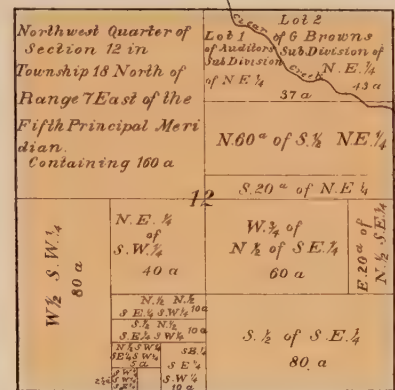 Northwest Quarter of
Section 12 in
Township 18 North of
Range 7 East of the
Fifth Principal Meri
dian.
Containing 160 a
Cigar
Creek
Lot 1
of Auditors
Sub Division
of N E ¼
37 a
Lot 2
of G Browns
Sub Division of
N.E. ¼
43 a
N. 60 a of S. ½ N.E. ¼
S. 20 a of N E ¼
12
W ½ S.W. ¼
80 a
N.E. ¼
of
S.W. ¼
40 a
W. ¾ of
N ½ of S E. ¼
60 a
E. 20 a of
N. ½ S.E. ¼
N. ½ N. ½
S E. ¼ S.W ¼ 10 a
S. ½ N. ½
S E. ¼ S W ¼ 10 a
N ½ S W ¼
S E ¼ S W ¼
5 a
S.E. ¼
S E ¼
S. W ¼
10 a
2½ a
S W ¼
S W ¼
S E ¼
S. ½ of S E. ¼
80 a